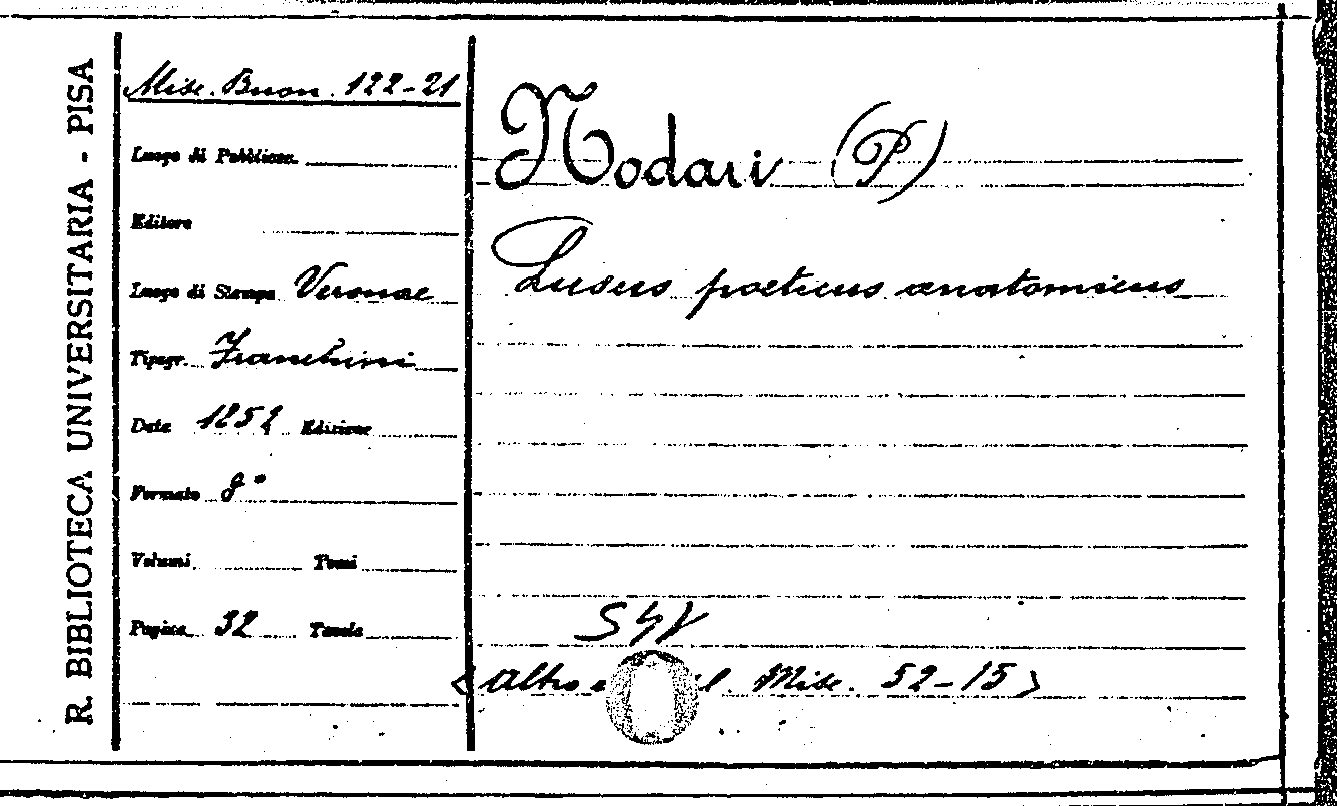 R. BIBLIOTECA UNIVERSITARIA - PISA
Misc. Buon. 122-21
Luogo di Pubblicaz.
Editore
Luogo di Stampa Veronae
Tipogr. Franchini
Data 1852 Edizione
Formato 8°
Volumi Tomi
Pagine 32 Tavole
Nodari (P)
Lusus poeticus anatomicus
<Altro Misc. 52-15>